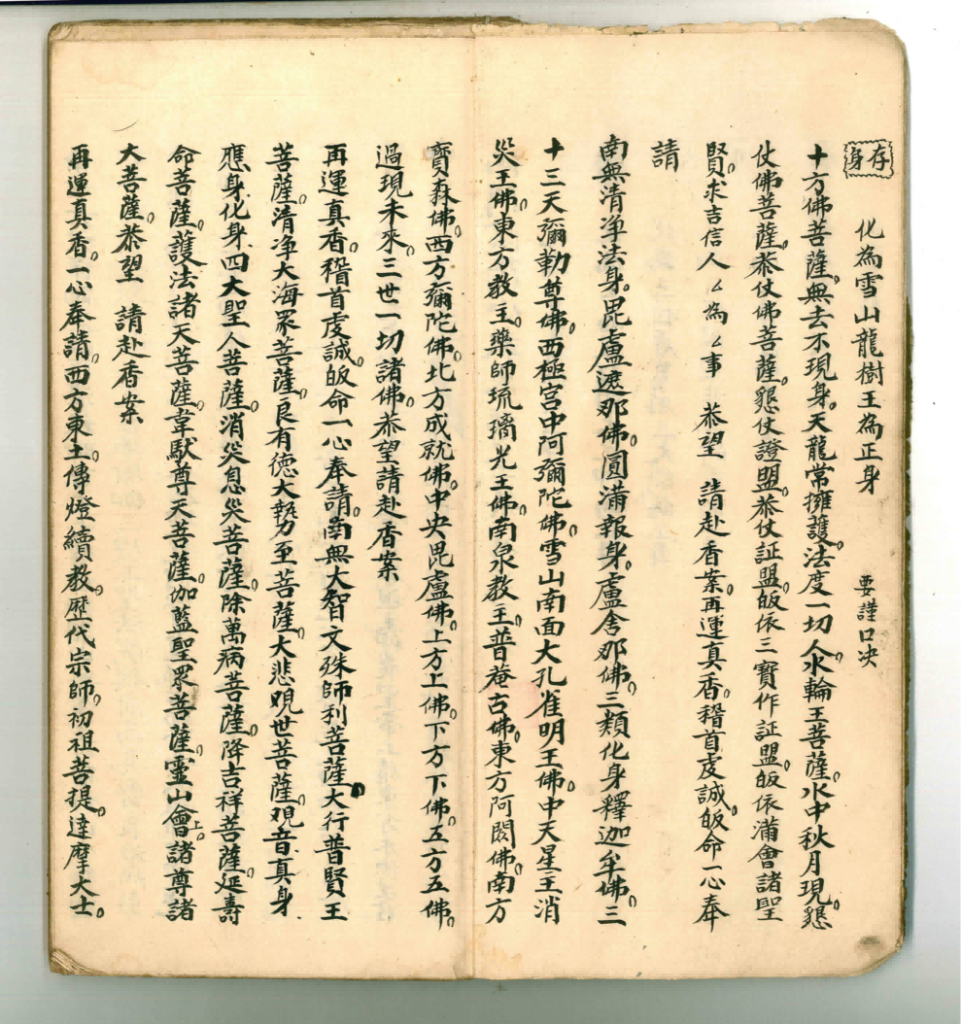 存身
化為雪山龍樹王為正身 要謹口决
十方佛菩薩。無去不現身。天龍常擁護。法度一切人。水輪王菩薩。水中秋月現。懇
仗佛菩薩。恭仗佛菩薩。懇仗證盟。恭仗証盟。皈依三寶作証盟。皈依滿會諸聖
賢。求吉信人厶為厶事 恭望 請赴香案。再運真香。稽首虔誠。皈命一心奉
請
南無清淨法身。毘盧遮那佛。圓滿報身。盧舍那佛。三類化身釋迦牟佛。三
十三天彌勒尊佛。西極宮中阿彌陀佛。雪山南面大孔雀明王佛。中天星主消
災王佛。東方教主。藥師琉璃光王佛。南泉教主。普菴古佛。東方阿閦佛。南方
寶森佛。西方彌陀佛。北方成就佛。中央毘盧佛。上方上佛。下方下佛。五方五佛。
過現未來。三世一切諸佛。恭望請赴香案
再運真香。稽首虔誠。皈命一心奉請。南無大智文殊師利菩薩。大行普賢王
菩薩。清净大海眾菩薩。良有德大勢至菩薩。大悲覌世菩薩。覌音真身
應身化身四大聖人菩薩。消災息災菩薩。除萬病菩薩。降吉祥菩薩。延壽
命菩薩。護法諸天菩薩。韋馱尊天菩薩。伽藍聖眾菩薩。靈山會上。諸尊諸
大菩薩。恭望 請赴香案
再運真香。一心奉請。西方東土。傳燈續教。歷代宗師。初祖菩提。達摩大士。